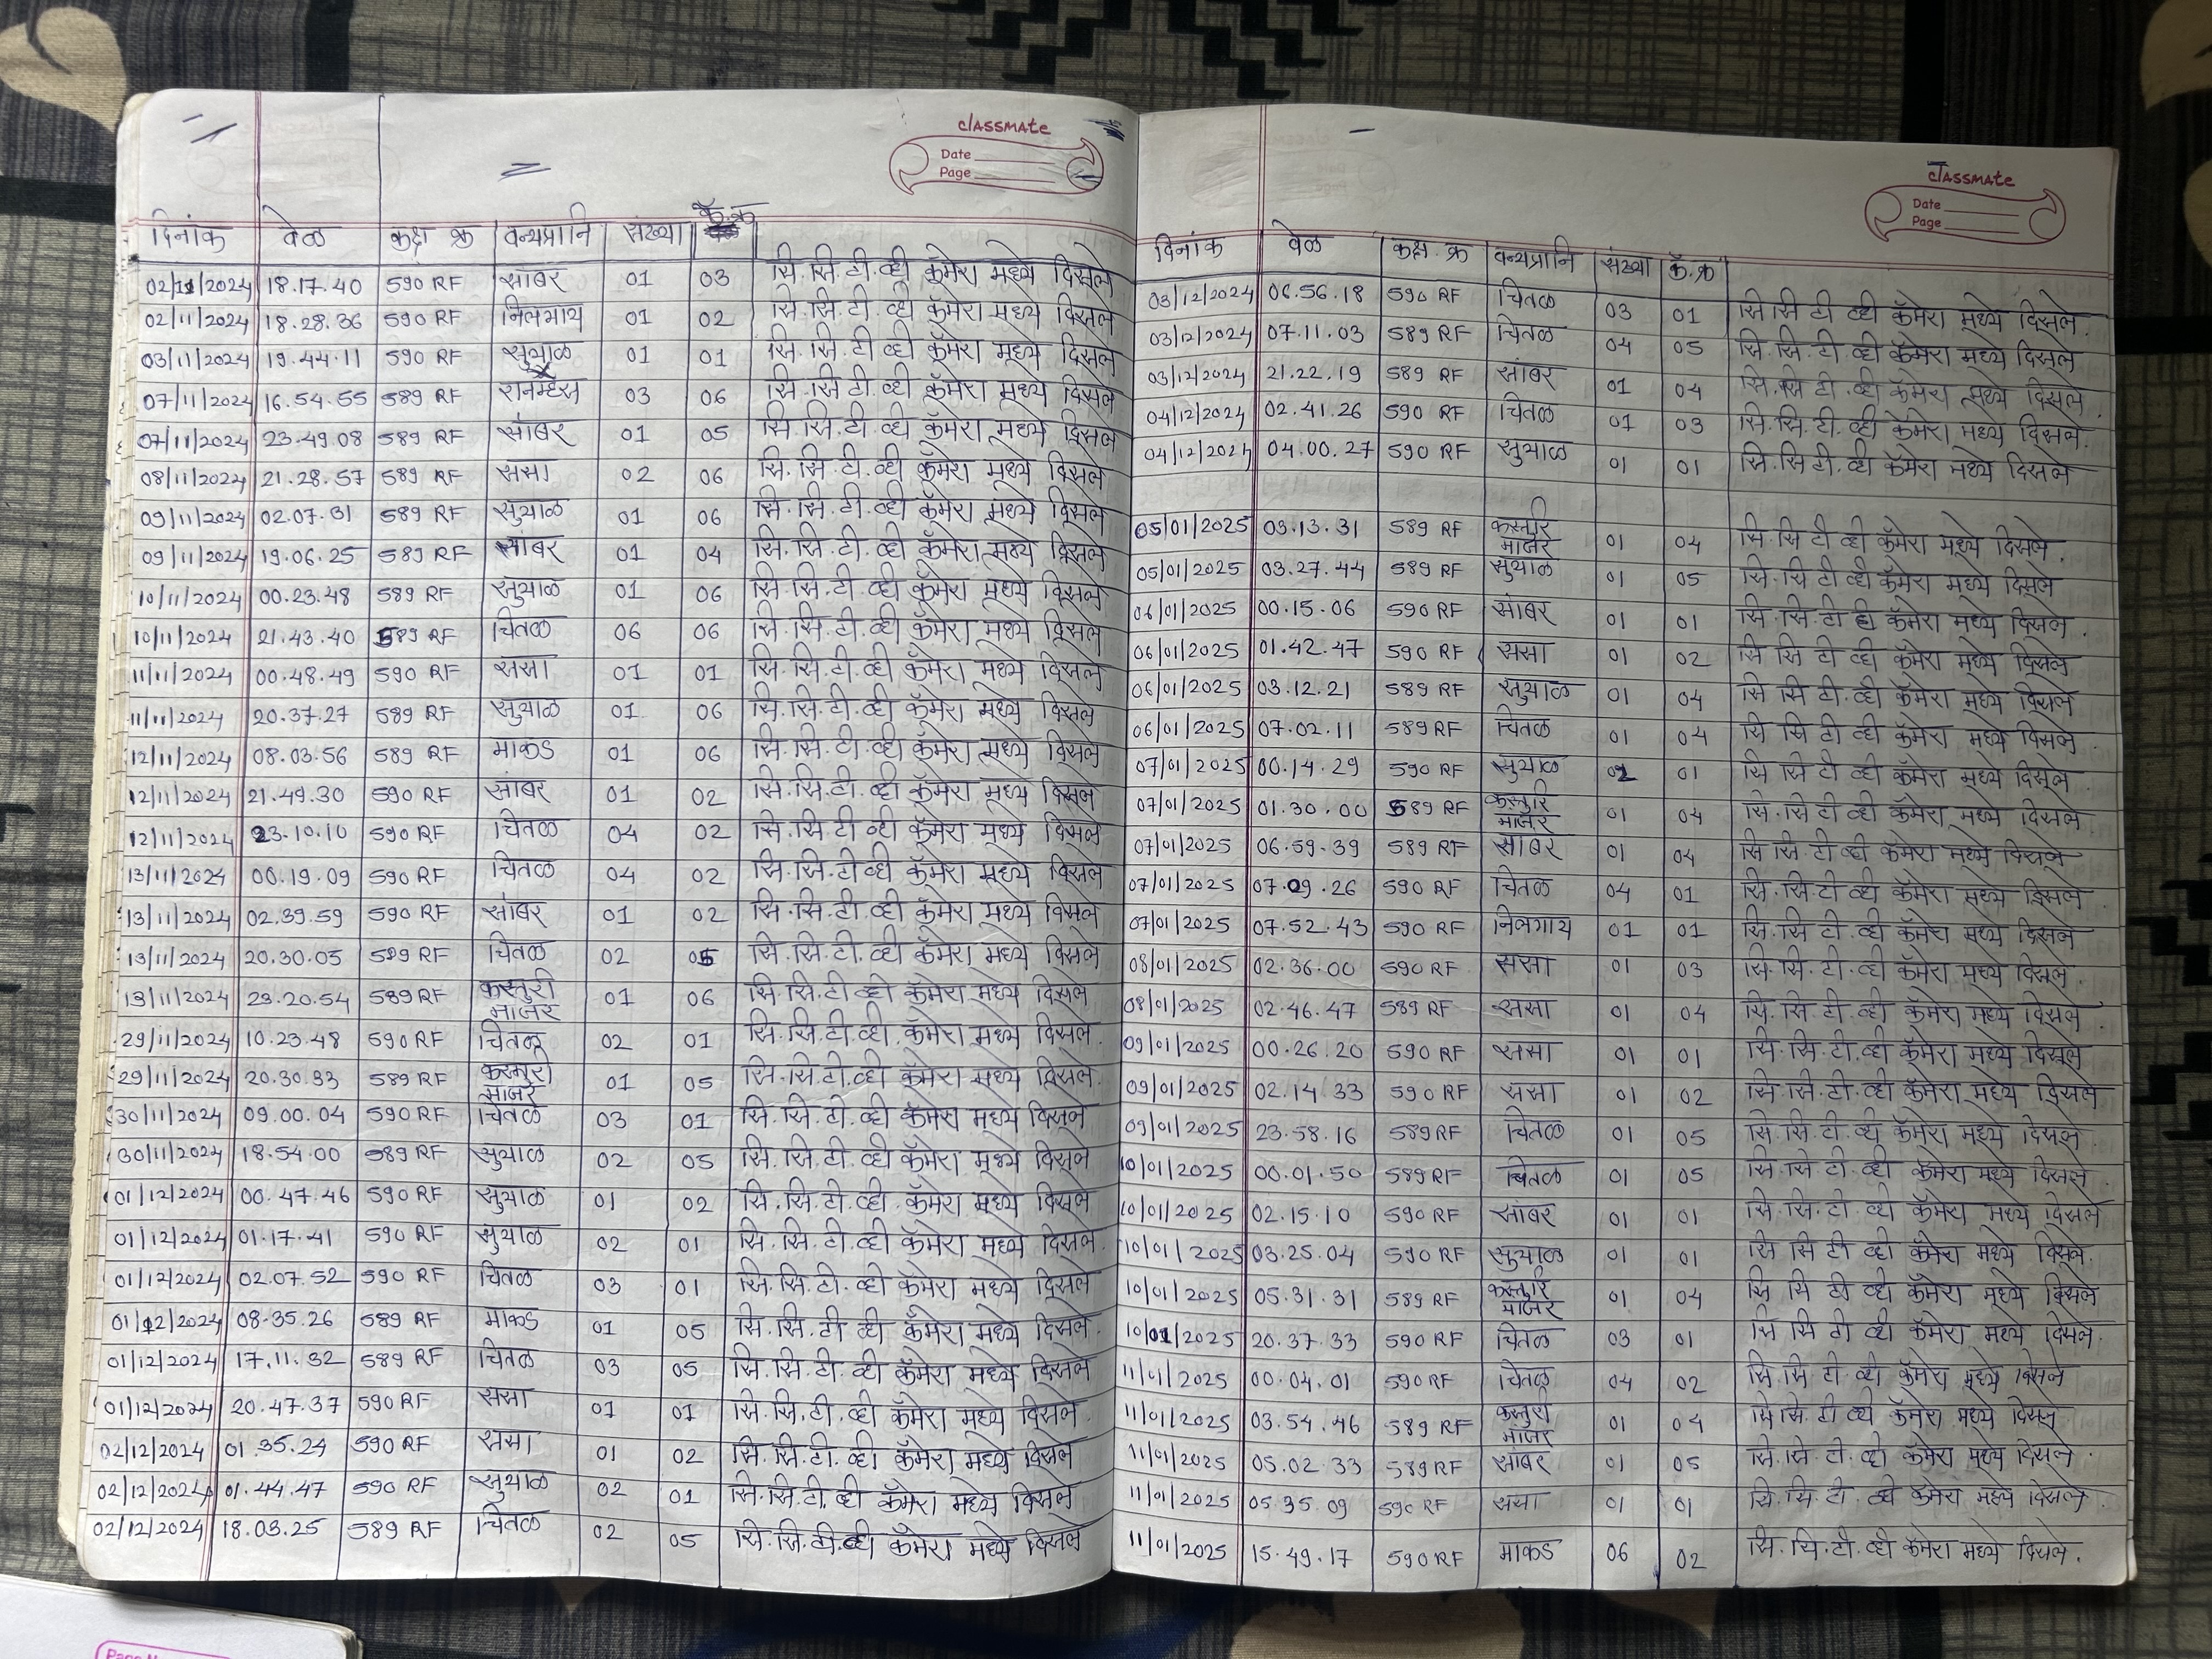 classmate
Date
Page
दिनांक वेळ कक्ष क्र वन्यप्रानि संख्या कॅ.क्र
02/11/2024 18.17.40 590 RF सांबर 01 03 सि.सि.टी.व्ही कॅमेरा मध्ये दिसले
02/11/2024 18.28.36 590 RF निलगाय 01 02 सि.सि.टी.व्ही कॅमेरा मध्ये दिसले
03/11/2024 19.44.11 590 RF सुयाळ 01 01 सि.सि.टी.व्ही कॅमेरा मध्ये दिसले
07/11/2024 16.54.55 589 RF रानम्हैस 03 06 सि.सि.टी.व्ही कॅमेरा मध्ये दिसले
07/11/2024 23.49.08 589 RF सांबर 01 05 सि.सि.टी.व्ही कॅमेरा मध्ये दिसले
08/11/2024 21.28.57 589 RF ससा 02 06 सि.सि.टी.व्ही कॅमेरा मध्ये दिसले
09/11/2024 02.07.31 589 RF सुयाळ 01 06 सि.सि.टी.व्ही कॅमेरा मध्ये दिसले
09/11/2024 19.06.25 589 RF सांबर 01 04 सि.सि.टी.व्ही कॅमेरा मध्ये दिसले
10/11/2024 00.23.48 589 RF सुयाळ 01 06 सि.सि.टी.व्ही कॅमेरा मध्ये दिसले
10/11/2024 21.43.40 589 RF चितळ 06 06 सि.सि.टी.व्ही कॅमेरा मध्ये दिसले
11/11/2024 00.48.49 590 RF ससा 01 01 सि.सि.टी.व्ही कॅमेरा मध्ये दिसले
11/11/2024 20.37.27 589 RF सुयाळ 01 06 सि.सि.टी.व्ही कॅमेरा मध्ये दिसले
12/11/2024 08.03.56 589 RF माकड 01 06 सि.सि.टी.व्ही कॅमेरा मध्ये दिसले
12/11/2024 21.49.30 590 RF सांबर 01 02 सि.सि.टी.व्ही कॅमेरा मध्ये दिसले
12/11/2024 23.10.10 590 RF चितळ 04 02 सि.सि.टी व्ही कॅमेरा मध्ये दिसले
13/11/2024 00.19.09 590 RF चितळ 04 02 सि.सि.टी व्ही कॅमेरा मध्ये दिसले
13/11/2024 02.39.59 590 RF सांबर 01 02 सि.सि.टी.व्ही कॅमेरा मध्ये दिसले
13/11/2024 20.30.05 589 RF चितळ 02 05 सि.सि.टी.व्ही कॅमेरा मध्ये दिसले
13/11/2024 23.20.54 589 RF कस्तुरी मांजर 01 06 सि.सि.टी व्ही कॅमेरा मध्ये दिसले
29/11/2024 10.23.48 590 RF चितळ 02 01 सि.सि.टी.व्ही. कॅमेरा मध्ये दिसले.
29/11/2024 20.30.33 589 RF कस्तुरी मांजर 01 05 सि.सि.टी.व्ही कॅमेरा मध्ये दिसले.
30/11/2024 09.00.04 590 RF चितळ 03 01 सि.सि.टी.व्ही कॅमेरा मध्ये दिसले
30/11/2024 18.54.00 589 RF सुयाळ 02 05 सि.सि.टी.व्ही कॅमेरा मध्ये दिसले
01/12/2024 00.47.46 590 RF सुयाळ 01 02 सि.सि.टी.व्ही. कॅमेरा मध्ये दिसले
01/12/2024 01.17.41 590 RF सुयाळ 02 01 सि.सि.टी.व्ही कॅमेरा मध्ये दिसले.
01/12/2024 02.07.52 590 RF चितळ 03 01 सि.सि.टी.व्ही कॅमेरा मध्ये दिसले
01/12/2024 08.35.26 589 RF माकड 01 05 सि.सि.टी व्ही कॅमेरा मध्ये दिसले.
01/12/2024 17.11.32 589 RF चितळ 03 05 सि.सि.टी.व्ही कॅमेरा मध्ये दिसले
01/12/2024 20.47.37 590 RF ससा 01 01 सि.सि.टी.व्ही कॅमेरा मध्ये दिसले.
02/12/2024 01.35.24 590 RF ससा 01 02 सि.सि.टी.व्ही. कॅमेरा मध्ये दिसले
02/12/2024 01.44.47 590 RF सुयाळ 02 01 सि.सि.टी.व्ही कॅमेरा मध्ये दिसले
02/12/2024 18.03.25 589 RF चितळ 02 05 सि.सि.टी.व्ही कॅमेरा मध्ये दिसले
classmate
Date
Page
दिनांक वेळ कक्ष.क्र वन्यप्रानि संख्या कॅ.क्र
03/12/2024 06.56.18 590 RF चितळ 03 01 सि सि टी व्ही कॅमेरा मध्ये दिसले.
03/12/2024 07.11.03 589 RF चितळ 04 05 सि.सि.टी.व्ही कॅमेरा मध्ये दिसले
03/12/2024 21.22.19 589 RF सांबर 01 04 सि.सि टी.व्ही कॅमेरा मध्ये दिसले.
04/12/2024 02.41.26 590 RF चितळ 01 03 सि.सि.टी.व्ही कॅमेरा मध्ये दिसले.
04/12/2024 04.00.27 590 RF सुयाळ 01 01 सि.सि टी.व्ही कॅमेरा मध्ये दिसले
05/01/2025 03.13.31 589 RF कस्तुरि मांजर 01 04 सि सि टी व्ही कॅमेरा मध्ये दिसले.
05/01/2025 03.27.44 589 RF सुयाळ 01 05 सि.सि टी व्ही कॅमेरा मध्ये दिसले
06/01/2025 00.15.06 590 RF सांबर 01 01 सि.सि.टी व्ही कॅमेरा मध्ये दिसले.
06/01/2025 01.42.47 590 RF ससा 01 02 सि सि टी व्ही कॅमेरा मध्ये दिसले
06/01/2025 03.12.21 589 RF सुयाळ 01 04 सि सि टी.व्ही कॅमेरा मध्ये दिसले
06/01/2025 07.02.11 589 RF चितळ 01 04 सि सि टी व्ही कॅमेरा मध्ये दिसले.
07/01/2025 00.14.29 590 RF सुयाळ 02 01 सि सि टी व्ही कॅमेरा मध्ये दिसले
07/01/2025 01.30.00 589 RF कस्तुरि मांजर 01 04 सि.सि टी व्ही कॅमेरा मध्ये दिसले.
07/01/2025 06.59.39 589 RF सांबर 01 04 सि सि टी व्ही कॅमेरा मध्ये दिसले
07/01/2025 07.09.26 590 RF चितळ 04 01 सि.सि.टी व्ही कॅमेरा मध्ये दिसले.
07/01/2025 07.52.43 590 RF निलगाय 01 01 सि.सि टी.व्ही कॅमेरा मध्ये दिसले
08/01/2025 02.36.00 590 RF ससा 01 03 सि.सि.टी.व्ही कॅमेरा मध्ये दिसले.
08/01/2025 02.46.47 589 RF ससा 01 04 सि.सि.टी.व्ही कॅमेरा मध्ये दिसले.
09/01/2025 00.26.20 590 RF ससा 01 01 सि.सि.टी.व्ही कॅमेरा मध्ये दिसले
09/01/2025 02.14.33 590 RF ससा 01 02 सि.सि.टी.व्ही कॅमेरा मध्ये दिसले
09/01/2025 23.58.16 589 RF चितळ 01 05 सि.सि.टी.व्ही कॅमेरा मध्ये दिसले.
10/01/2025 00.01.50 589 RF चितळ 01 05 सि.सि टी.व्ही कॅमेरा मध्ये दिसले.
10/01/2025 02.15.10 590 RF सांबर 01 01 सि.सि.टी.व्ही कॅमेरा मध्ये दिसले
10/01/2025 03.25.04 590 RF सुयाळ 01 01 सि सि टी व्ही कॅमेरा मध्ये दिसले.
10/01/2025 05.31.31 589 RF कस्तुरि मांजर 01 04 सि सि टी व्ही कॅमेरा मध्ये दिसले
10/01/2025 20.37.33 590 RF चितळ 03 01 सि सि टी व्ही कॅमेरा मध्ये दिसले.
11/01/2025 00.04.01 590 RF चितळ 04 02 सि सि टी व्ही कॅमेरा मध्ये दिसले
11/01/2025 03.54.46 589 RF कस्तुरी मांजर 01 04 सि सि टी व्ही कॅमेरा मध्ये दिसले
11/01/2025 05.02.33 589 RF सांबर 01 05 सि.सि.टी.व्ही कॅमेरा मध्ये दिसले.
11/01/2025 05.35.09 590 RF ससा 01 01 सि.सि.टी.व्ही कॅमेरा मध्ये दिसले.
11/01/2025 15.49.17 590 RF माकड 06 02 सि.सि.टी.व्ही कॅमेरा मध्ये दिसले.